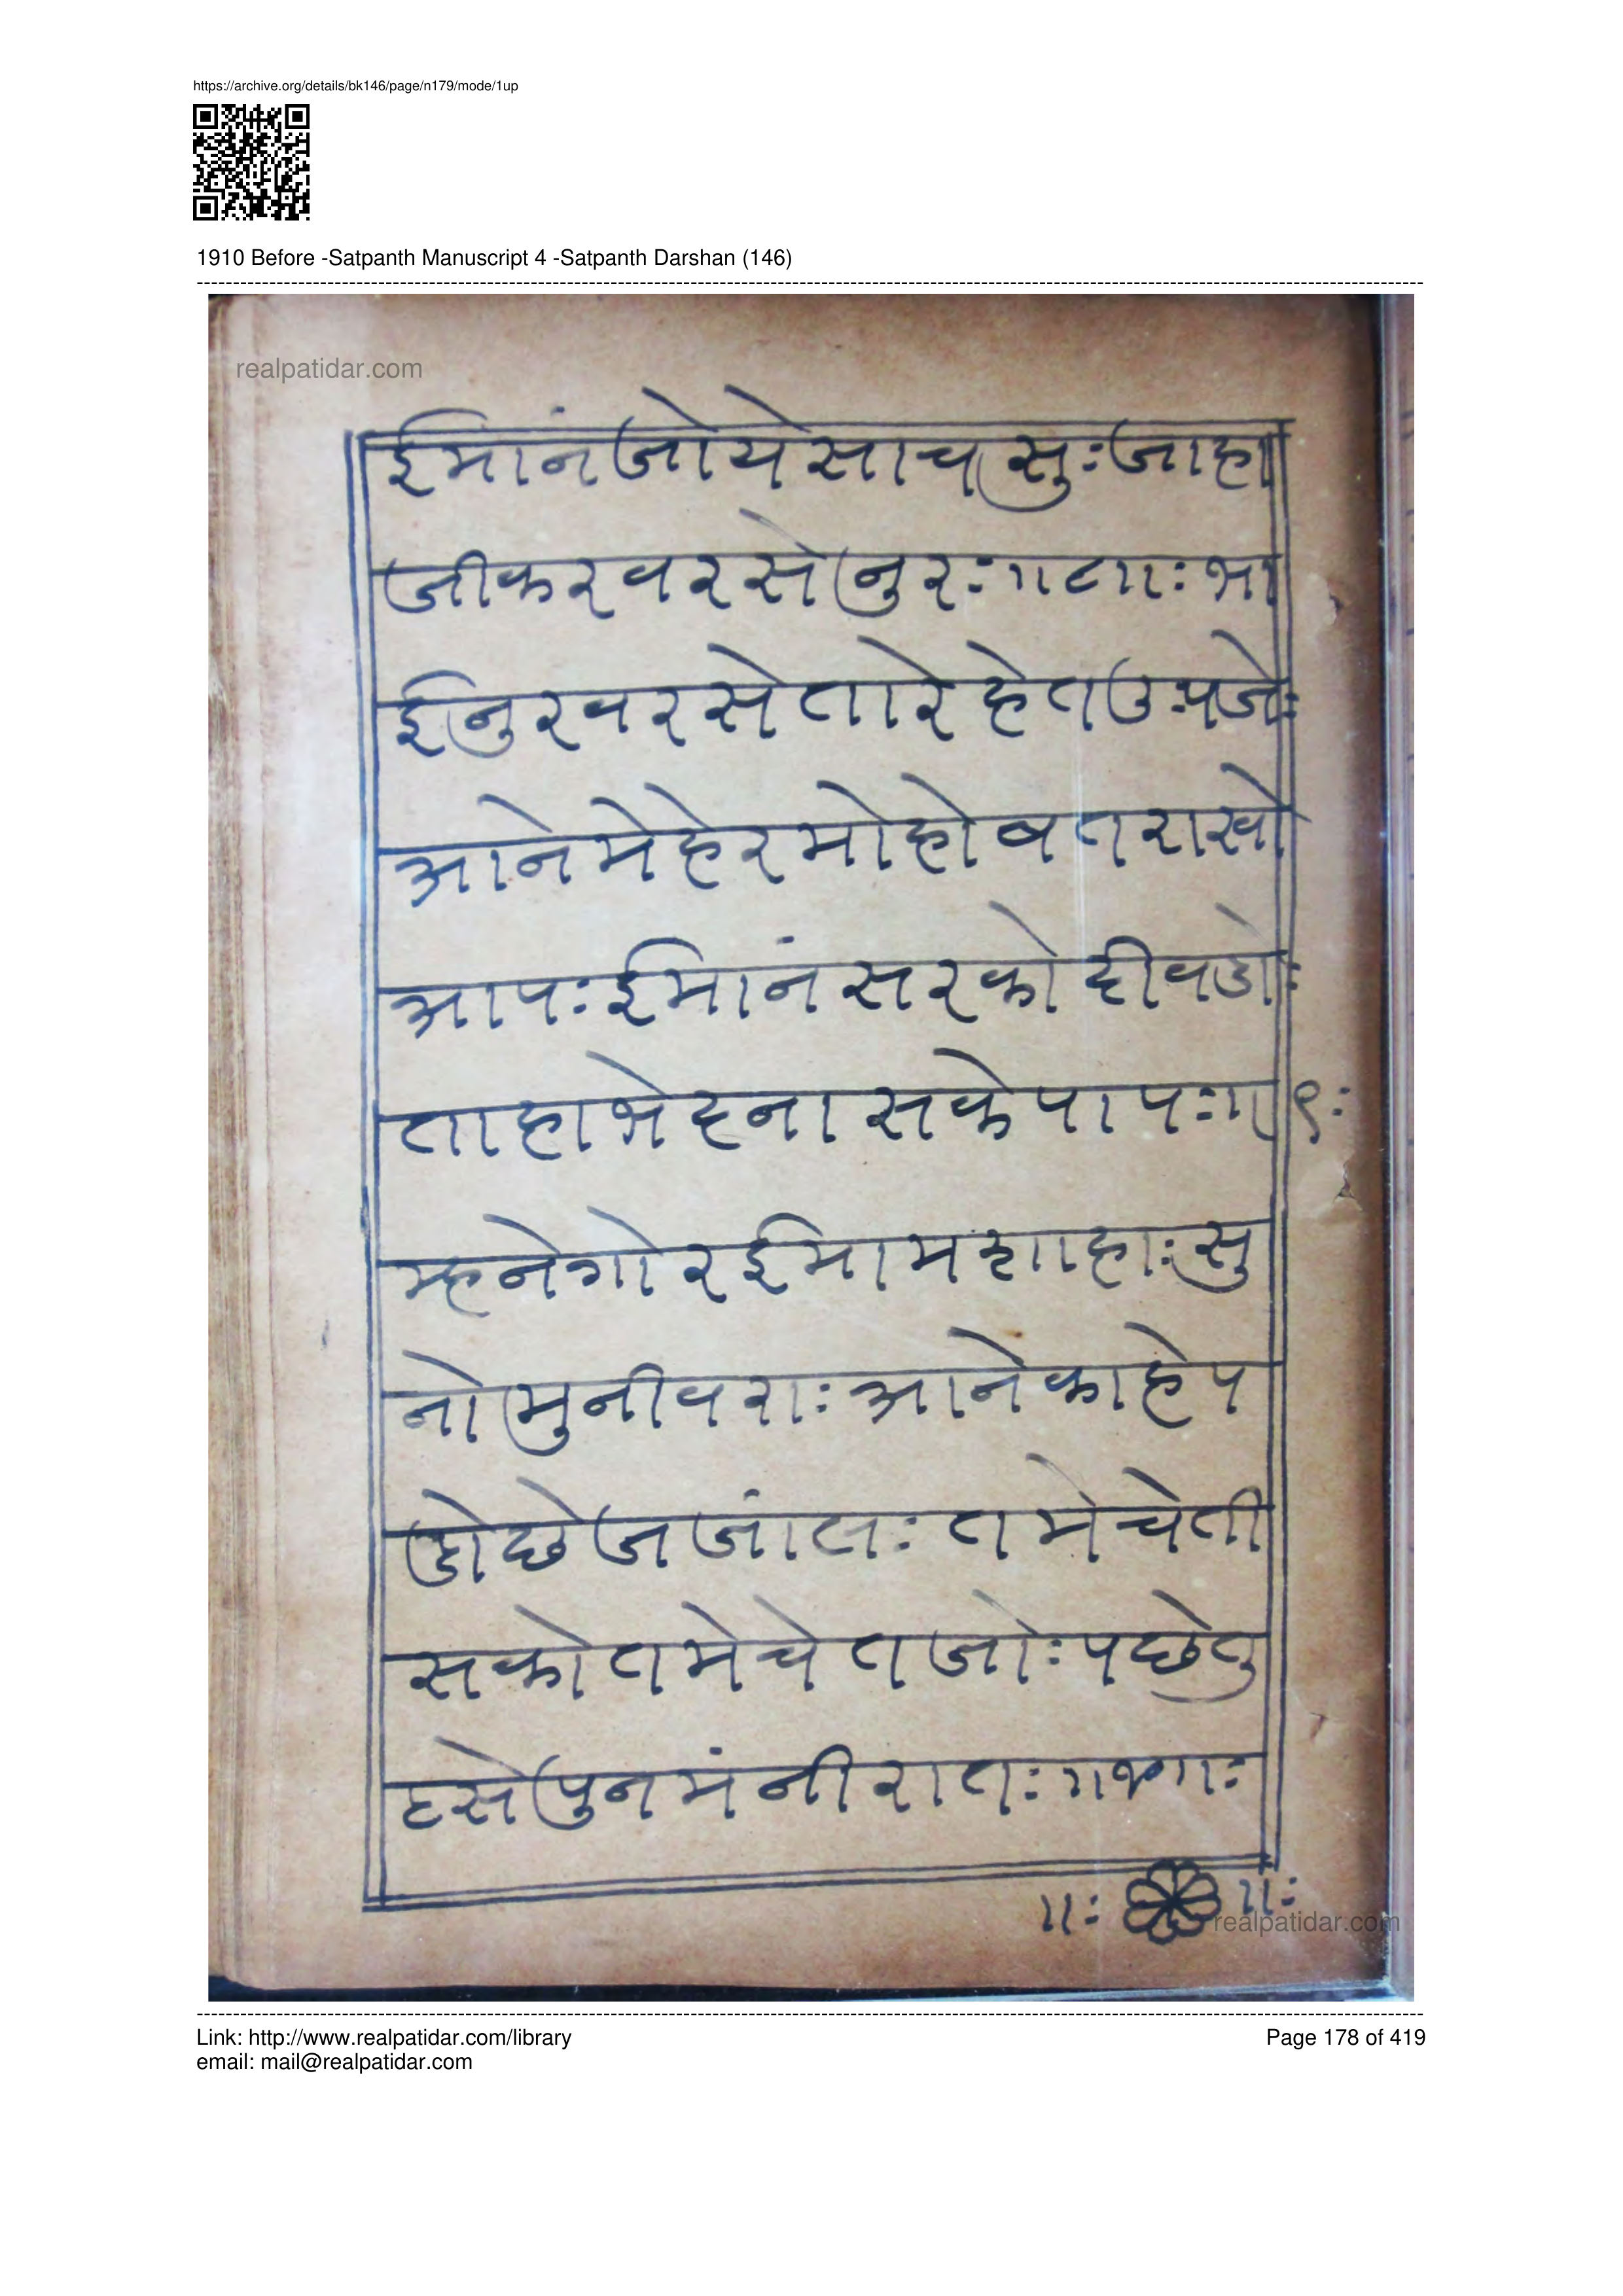 https://archive.org/details/bk146/page/n179/mode/1up
1910 Before -Satpanth Manuscript 4 -Satpanth Darshan (146)
realpatidar.com
ईमांन जोये साच सुः जाहा
जीकर वरसे नुरः ॥८॥ः भा
ई नुर वरसे तारे हेत उःपजेः
आने मेहेर मोहोवत राखो
आपः ईमांन सरको दीवडोः
ताहा भेदना सके पापः॥९ः
म्हने गोर ईमाम शाहाः सु
नो मुनीवराः आने काहे प
डो छे जजांलः तमे चेती
सको तमे चेतजोः पछे तु
टसे पुनमंनी रातः
॥ः ॥ः
realpatidar.com
Link: http://www.realpatidar.com/library
email: mail@realpatidar.com
Page 178 of 419